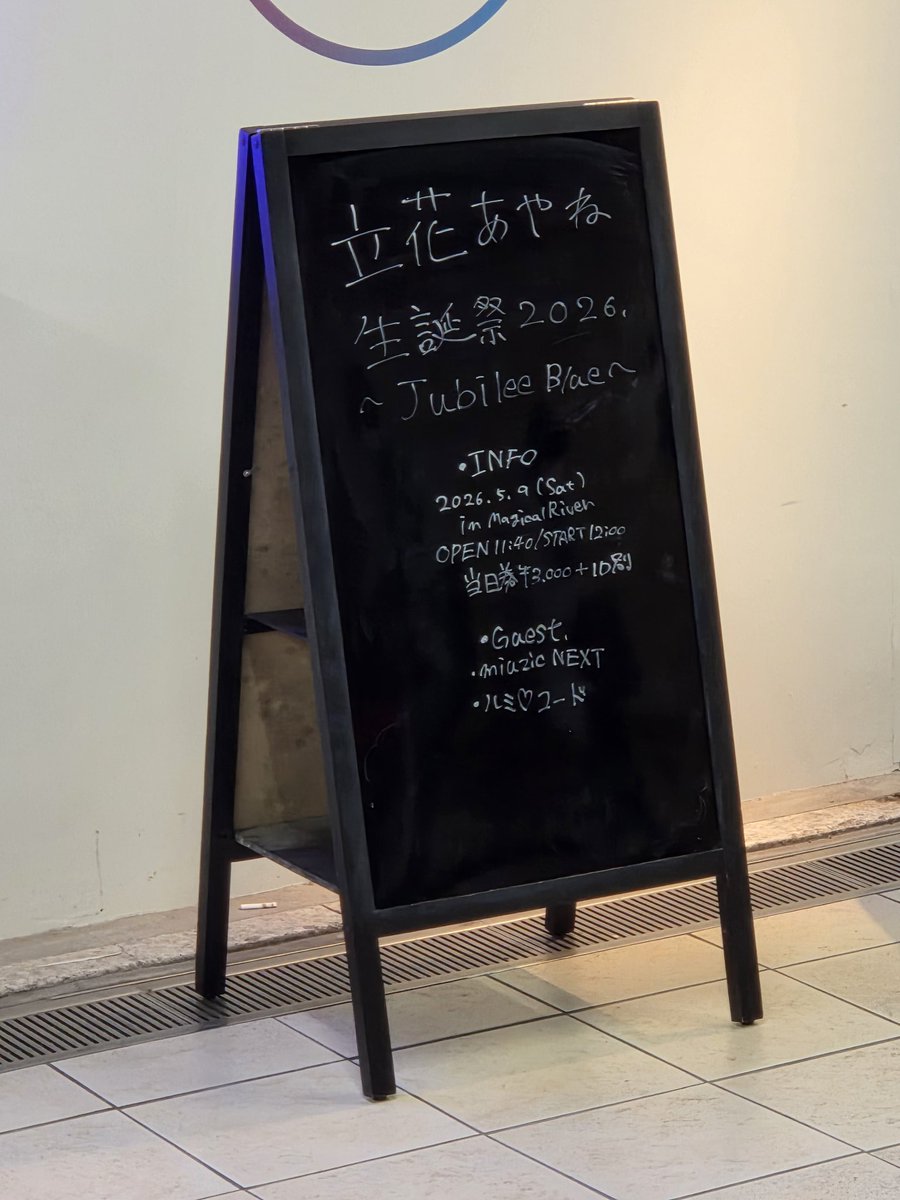 立花あやね
生誕祭2026.
~Jubilee Blue~
・INFO
2026.5.9(Sat)
in Magical River
OPEN 11:40/START 12:00
当日券¥3.000+1D別
・Guest.
・miuzic NEXT
・ルミ♡コード